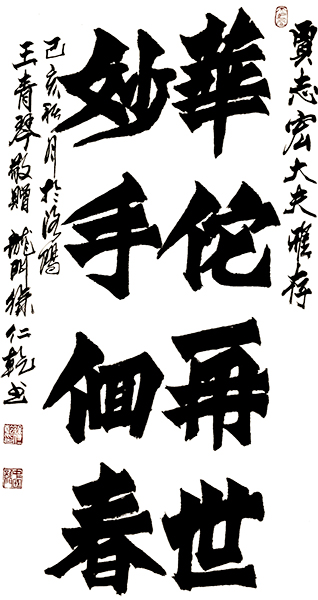 賈志宏大夫雅存
華佗再世
妙手佪春
己亥秋月於洛陽
王青琴敬贈 龍門徐仁乾书